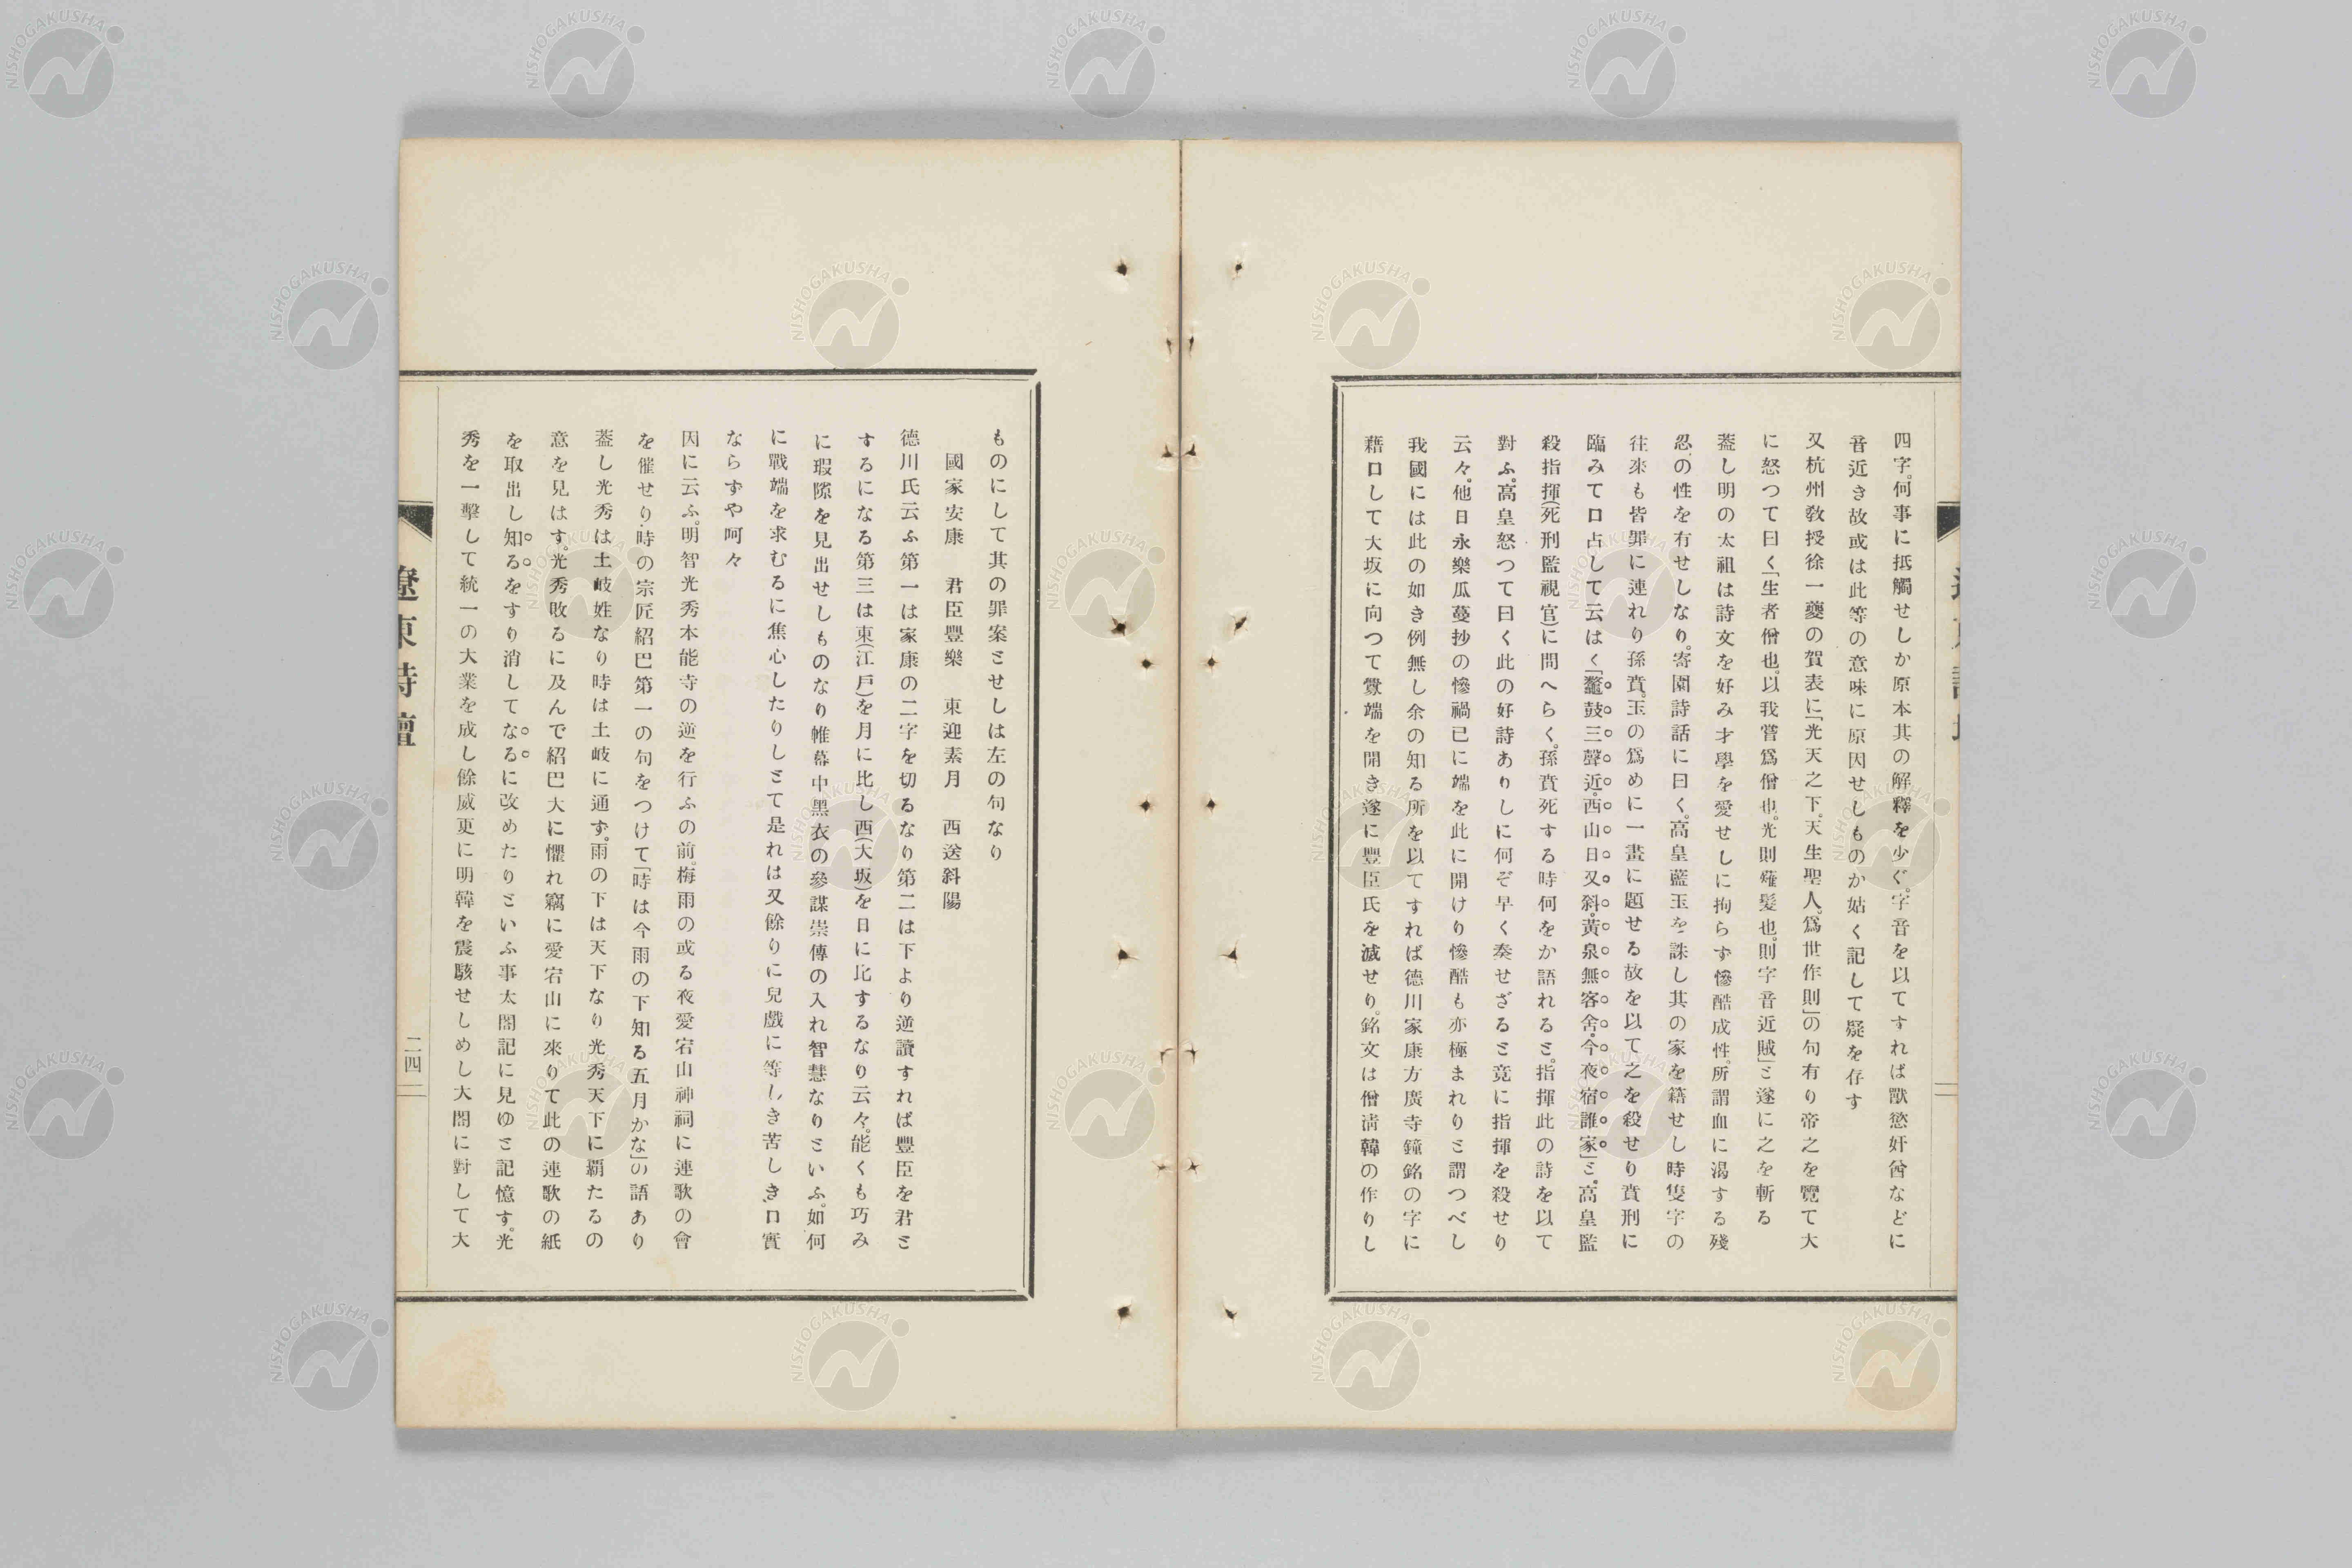 四字。何事に抵觸せしか原本其の解釋を少ぐ。字音を以てすれば獸慾奸酋などに
音近き故或は此等の意味に原因せしものか姑く記して疑を存す
又杭州敎授徐一夔の賀表に「光天之下。天生聖人。爲世作則」の句有り帝之を覽て大
に怒つて曰く「生者僧也。以我嘗爲僧也。光則薙髮也。則字音近賊」と遂に之を斬る
葢し明の太祖は詩文を好み才學を愛せしに拘らず慘酷成性。所謂血に渴する殘
忍の性を有せしなり。寄園詩話に曰く。高皇藍玉を誅し其の家を籍せし時隻字の
往來も皆罪に連れり孫蕡。玉の爲めに一畫に題せる故を以て之を殺せり蕡刑に
臨みて口占して云はく「鼉鼓三聲近。西山日又斜。黃泉無客舍。今夜宿誰家」と。高皇監
殺指揮(死刑監視官)に問へらく。孫蕡死する時何をか語れると。指揮此の詩を以て
對ふ。高皇怒つて曰く此の好詩ありしに何ぞ早く奏せざると竟に指揮を殺せり
云々。他日永樂瓜蔓抄の慘禍已に端を此に開けり慘酷も亦極まれりと謂つべし
我國には此の如き例無し余の知る所を以てすれば德川家康方廣寺鐘銘の字に
藉口して大坂に向つて釁端を開き遂に豐臣氏を滅せり。銘文は僧淸韓の作りし
ものにして其の罪案とせしは左の句なり
國家安康　君臣豐樂　東迎素月　西送斜陽
德川氏云ふ第一は家康の二字を切るなり第二は下より逆讀すれば豐臣を君と
するになる第三は東(江戶)を月に比し西(大坂)を日に比するなり云々。能くも巧み
に瑕隙を見出せしものなり帷幕中黑衣の參謀崇傳の入れ智慧なりといふ。如何
に戰端を求むるに焦心したりしとて是れは又餘りに兒戲に等しき苦しき口實
ならずや呵々
因に云ふ。明智光秀本能寺の逆を行ふの前。梅雨の或る夜愛宕山神祠に連歌の會
を催せり。時の宗匠紹巴第一の句をつけて「時は今雨の下知る五月かな」の語あり
葢し光秀は土岐姓なり時は土岐に通ず。雨の下は天下なり光秀天下に覇たるの
意を見はす。光秀敗るに及んで紹巴大に懼れ竊に愛宕山に來りて此の連歌の紙
を取出し知るをすり消してなるに改めたりといふ事太閤記に見ゆと記憶す。光
秀を一擊して統一の大業を成し餘威更に明韓を震駭せしめし大閤に對して大
遼東詩壇
二四